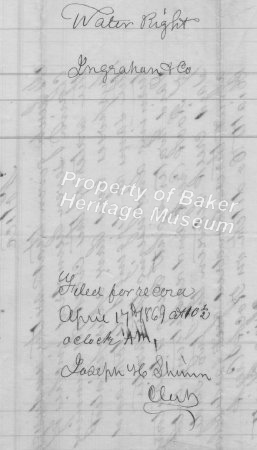 Water Right
Ingraham & Co
Property of Baker
Heritage Museum
Filed for record
April 17th 1869 at 10½
oclock AM,
Joseph H Shinn
Clerk